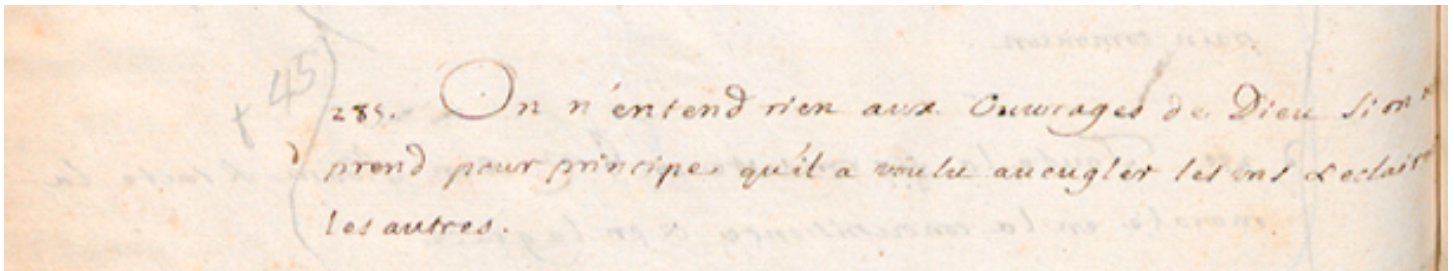 + 45
285. On n'entend rien aux Ouurages de Dieu si on ne
prend pour principe qu'il a voulu aueugler les uns & eclairer
les autres.